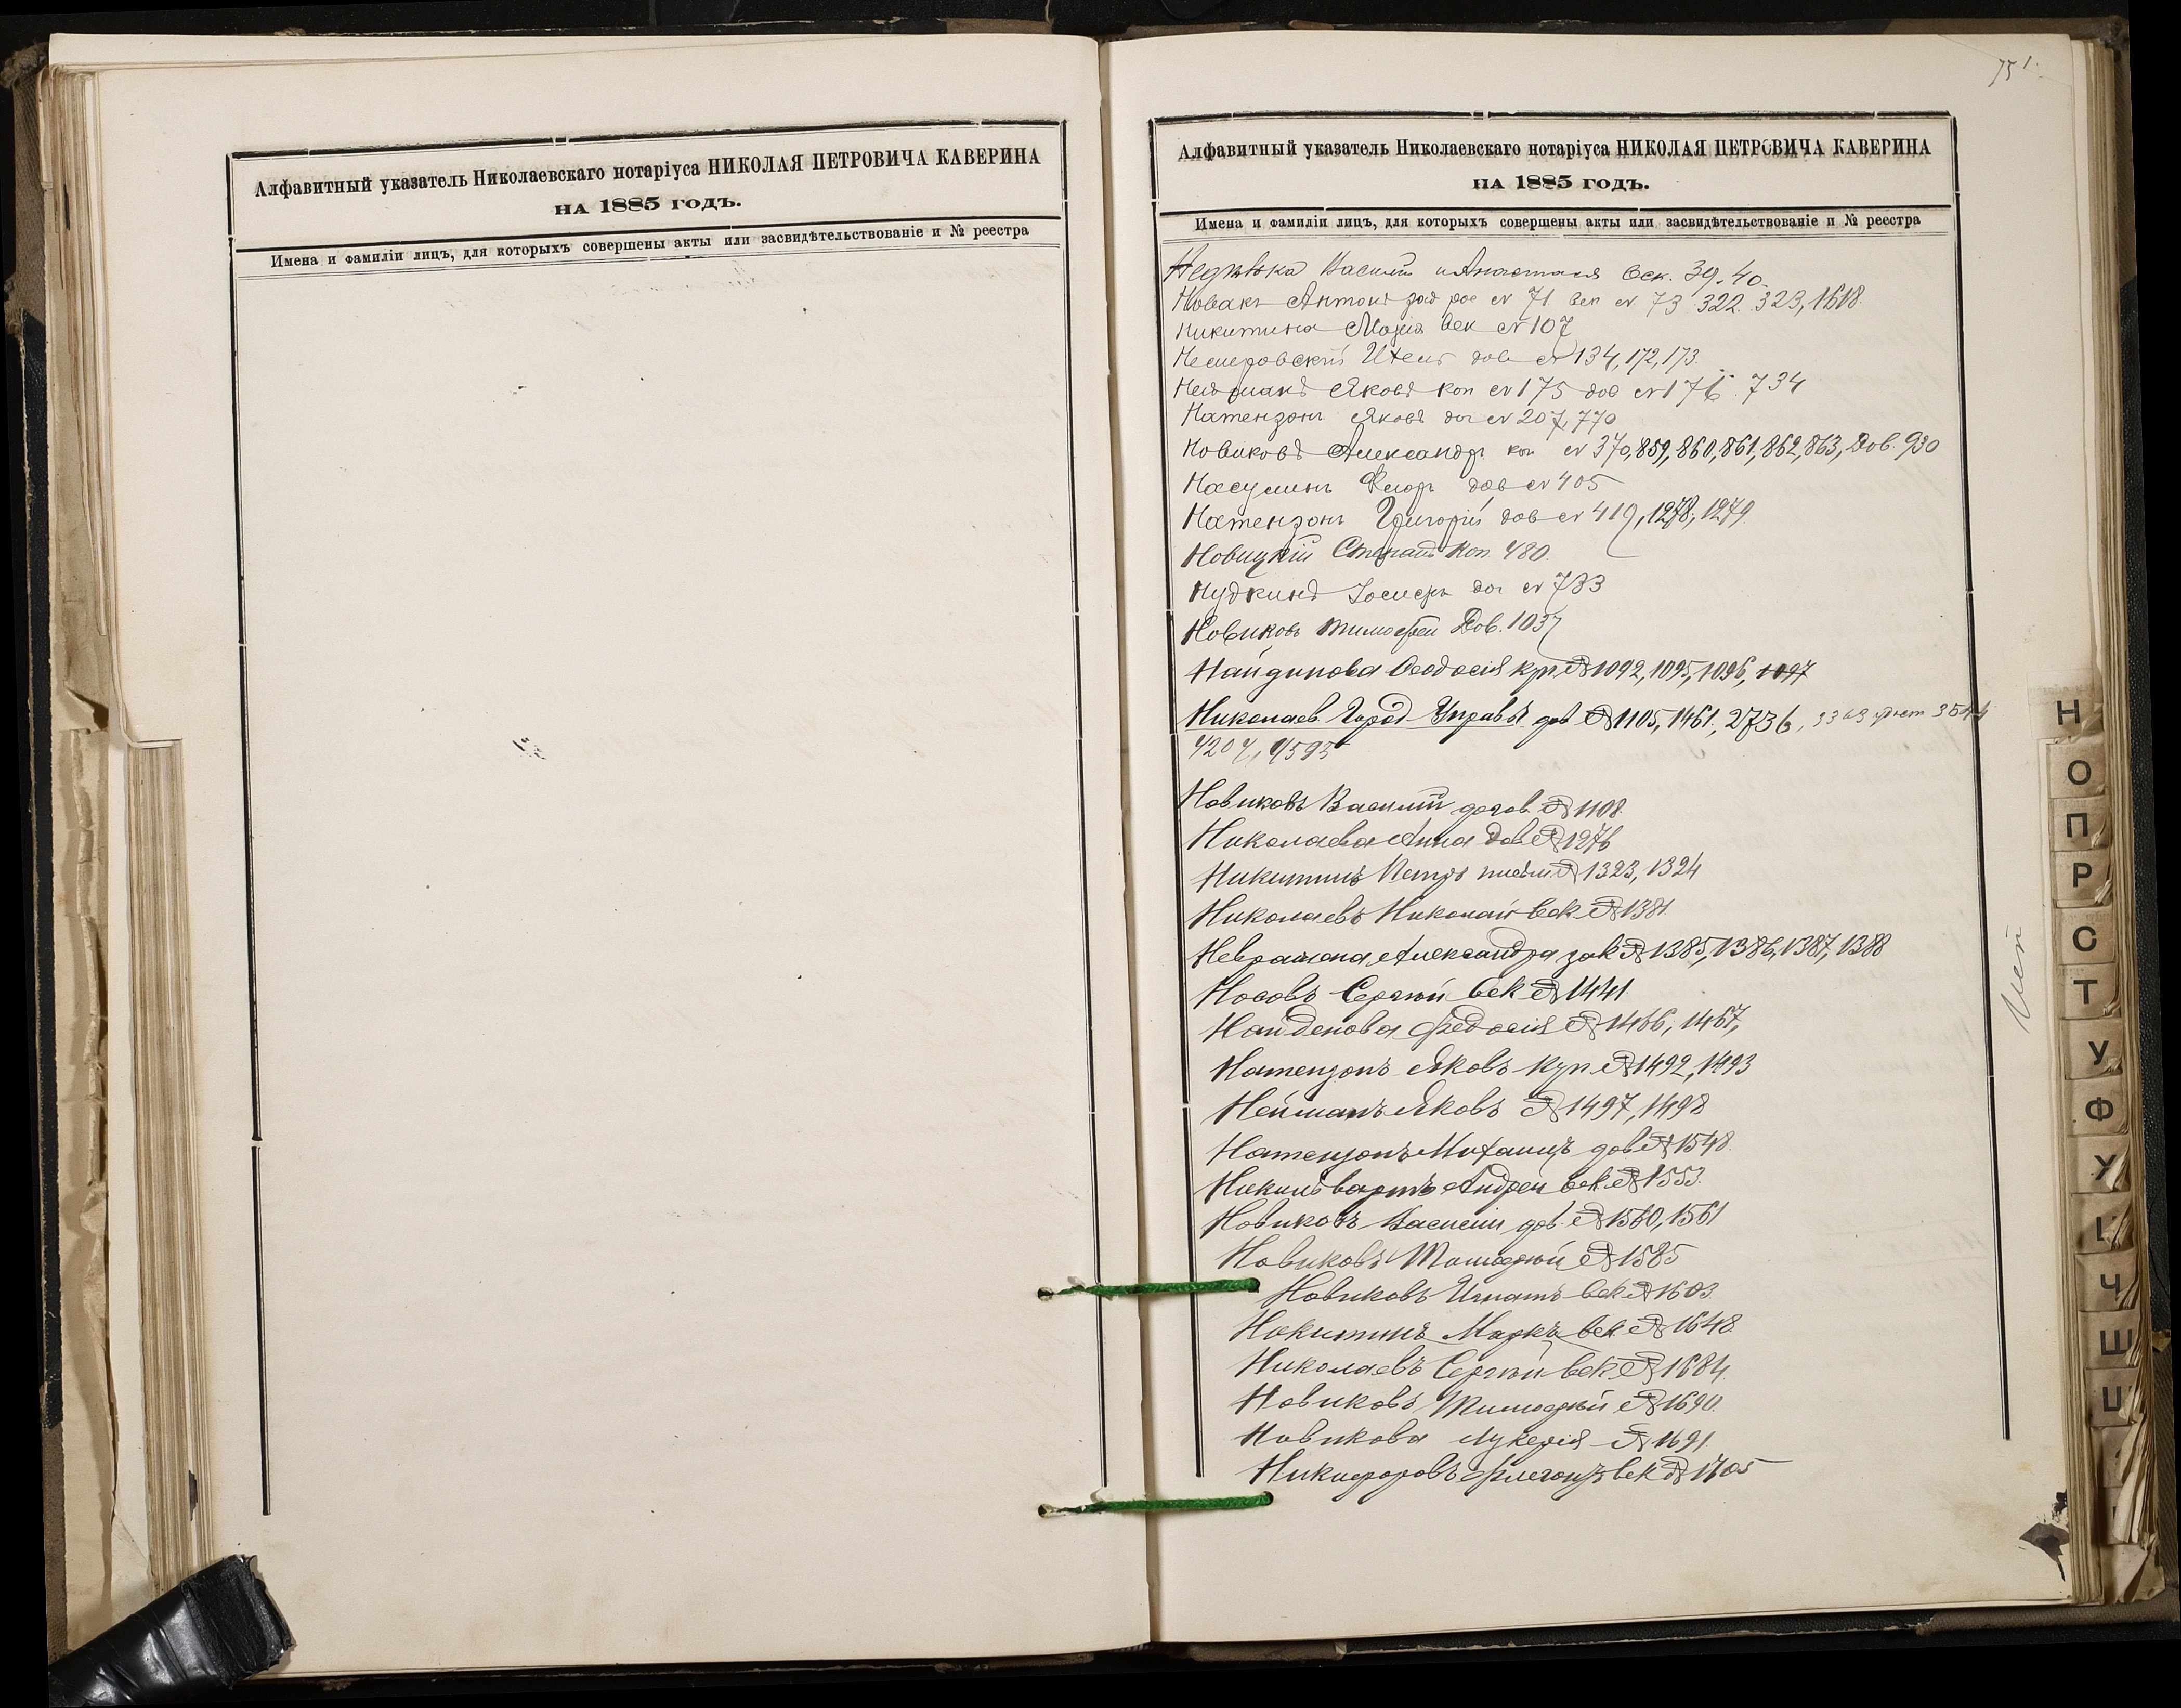 Алфавитный указатель Николаевскаго нотаріуса НИКОЛАЯ ПЕТРОВИЧА КАВЕРИНА
НА 1885 ГОДЪ.
Имена и фамиліи лицъ, для которыхъ совершены акты или засвидѣтельствованіе и № реестра
751
Алфавитный указатель Николаевскаго нотаріуса НИКОЛАЯ ПЕТРОВИЧА КАВЕРИНА
НА 1885 ГОДЪ.
Имена и фамиліи лицъ, для которыхъ совершены акты или засвидѣтельствованіе и № реестра
Василій и Анастасія век. 39. 40.
Новакъ Антонъ № 71 век № 73 322. 323, 1618.
Никитина Марія век № 107
Немеровскій дов № 134, 172, 173.
Нейманъ Яковъ коп № 175 дов № 176. 734
Натензонъ Яковъ дог № 207, 770
Новиковъ Александръ коп № 370, 859, 860, 861, 862, 863, Дов. 930
дов № 405
Натензонъ Григорій дов № 419, 1278, 1279.
Новицкій Степанъ Коп. 480.
Нудкинъ Іосифъ дог № 733
Новиковъ Тимофей Дов. 1037
Найдинова Феодосія куп № 1092, 1095, 1096, 1097
Николаев. Город Управа дов № 1105, 1461, 2736, 3544
4207, 4595
Новиковъ Василій догов. № 1108.
Николаева Анна Дов № 1276
Никитинъ Петръ № 1323, 1324
Николаевъ Николай век № 1381.
Александра № 1385, 1386, 1387, 1388
Носовъ Сергѣй век № 1441.
Найденова Федосія № 1466, 1467,
Натензонъ Яковъ куп № 1492, 1493
Нейманъ Яковъ № 1497, 1498
Натензонъ дов № 1548.
Андрей век № 1553.
Новиковъ Василій дов. № 1560, 1561
Новиковъ Тимофѣй № 1585
Новиковъ Игнатъ век № 1603.
Никитинъ Маркъ век № 1648.
Николаевъ Сергѣй век № 1684.
Новиковъ Тимофѣй № 1690.
Новикова Лукерія № 1691.
Никифоровъ век № 1705
Н
О
П
Р
С
Т
У
Ф
Х
Ц
Ч
Ш
Щ